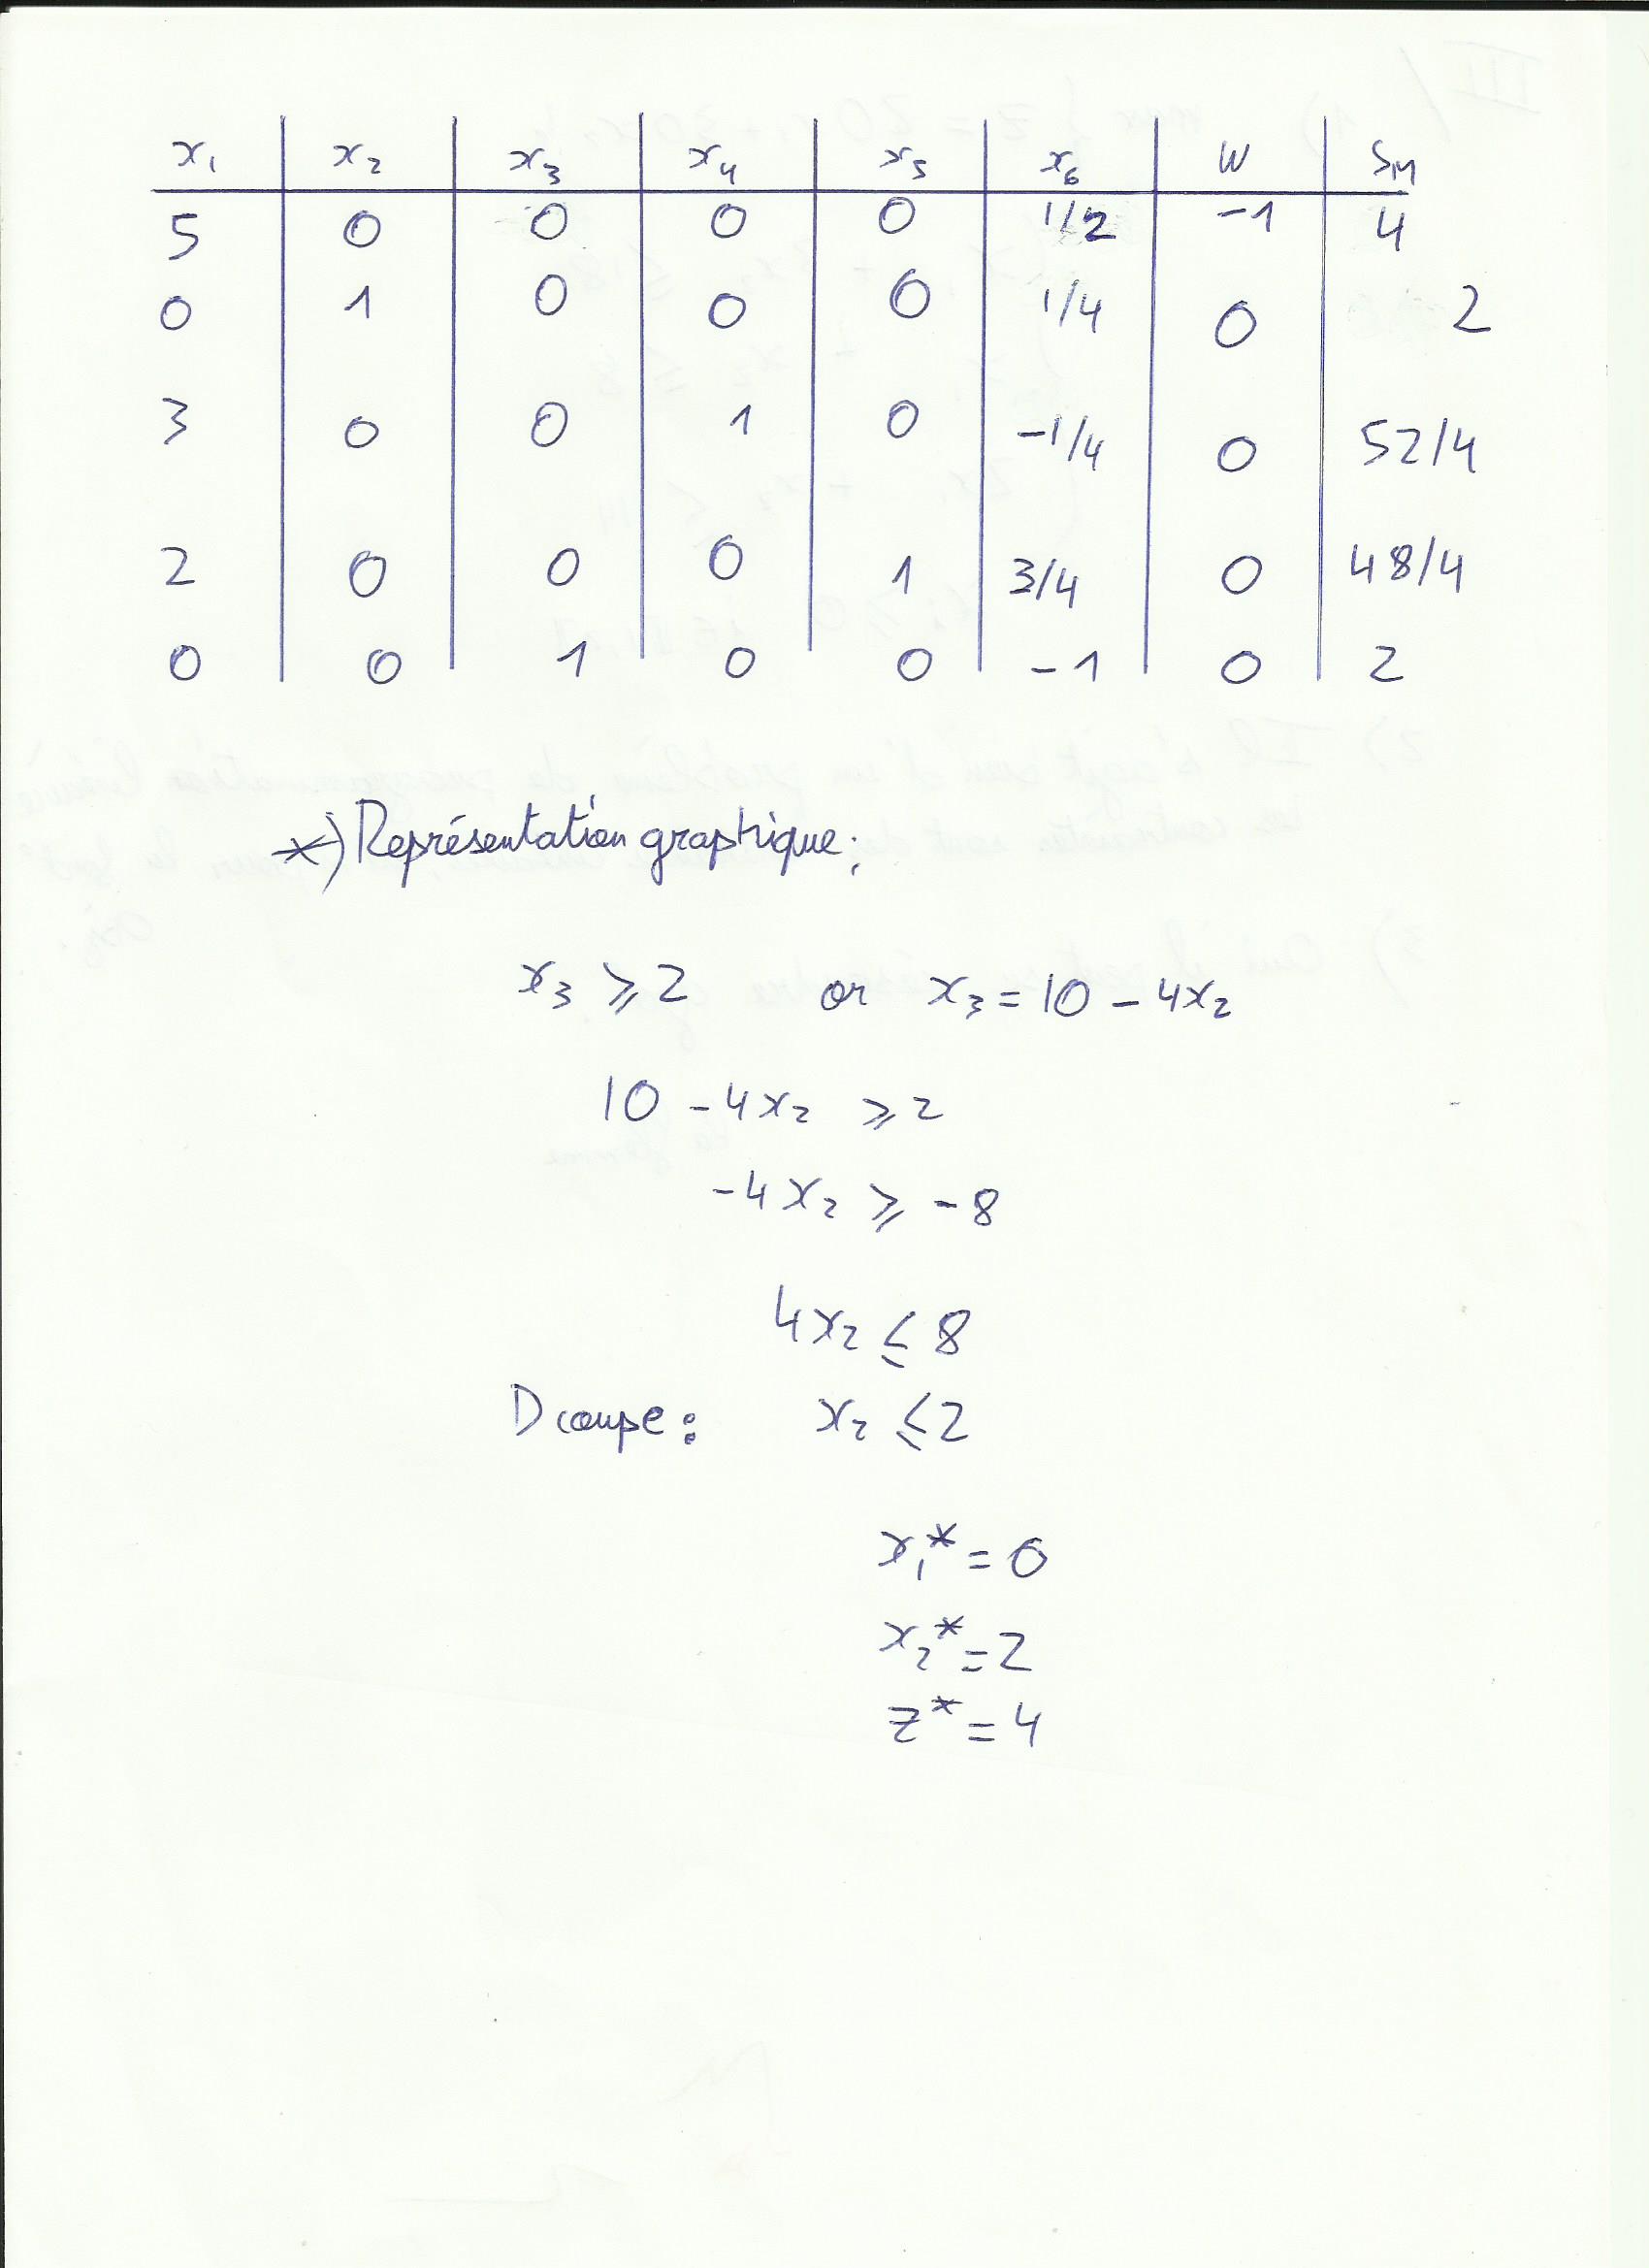 x₁ x₂ x₃ x₄ x₅ x₆ W SM
5 0 0 0 0 1/2 -1 4
0 1 0 0 0 1/4 0 2
3 0 0 1 0 -1/4 0 52/4
2 0 0 0 1 3/4 0 48/4
0 0 1 0 0 -1 0 2
*) Représentation graphique:
x₃ ⩾ 2 or x₃ = 10 - 4x₂
10 - 4x₂ ⩾ 2
-4x₂ ⩾ -8
4x₂ ≤ 8
D coupe: x₂ ≤ 2
x₁* = 0
x₂* = 2
z* = 4